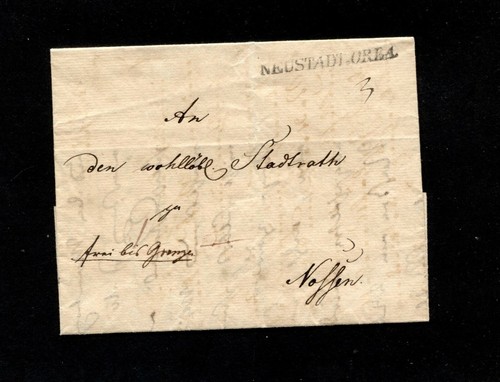 NEUSTADT.ORLA
3
An
den wohllöbl. Stadtrath
zu
frei bis Grenze
Nossen.